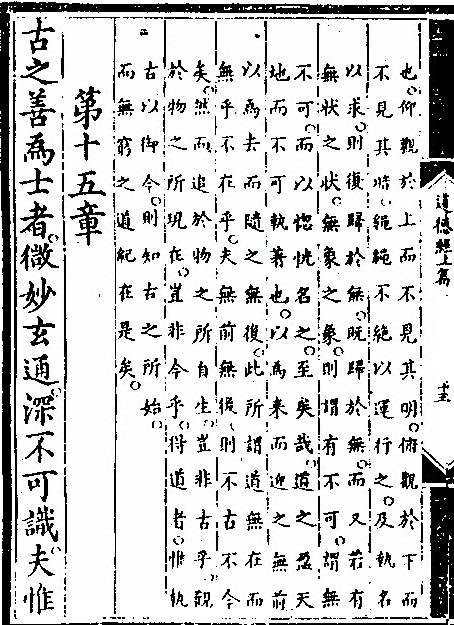 道德經上篇
十五
也。仰觀於上而不見其明。俯觀於下而
不見其暗。繩繩不絕以運行之。及執名
以求。則復歸於無。既歸於無。而又若有
無狀之狀。無象之象。則謂有不可。謂無
不可。而以惚恍名之。至矣哉。道之盈天
地而不可執著也。以為來而迎之無前
以為去而隨之無後。此所謂道無在而
無乎不在乎。夫無前無後。則不古不今
矣。然而追於物之所自生。豈非古乎。觀
於物之所現在。豈非今乎。得道者。惟執
古以御今。則知古之所始。
而無窮之道紀在是矣。
第十五章
古之善為士者。微妙玄通。深不可識。夫惟